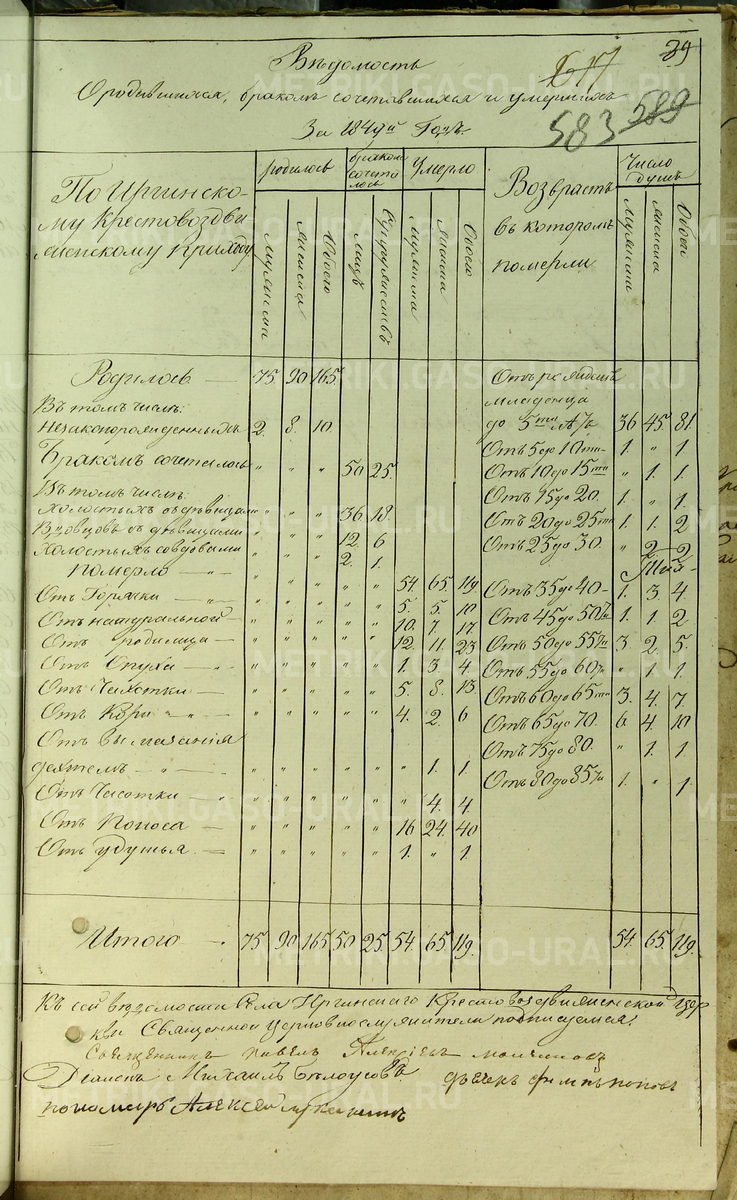 Вѣдомость
617 39
О родившихся, бракомъ сочетавшихся и умершихъ
За 184 й Годъ.
583 589
По Иргинско-
му Крестовоздви
женскому приходу
родилось
бракомъ
сочета
лось
Умерло
Возврастъ
въ которомъ
померли
Число
душъ
Мужеска Женска Обоего Лицъ Супружествъ Мужеска Женска Обоего Мужеска Женска Обоего
Родилось — 75 90 165
Въ томъ числѣ:
Незаконорожденныхъ 2. 8. 10
Бракомъ сочеталось „ „ „ 50 25.
Въ томъ числѣ:
Холостыхъ съ дѣвицами „ „ „ 36. 18.
Вдовцовъ съ дѣвицами „ „ „ 12. 6
Холостыхъ со вдовами „ „ „ 2. 1.
померло — „ „ „ „ „ 54. 65. 119
Отъ Горячки — „ „ „ „ „ 5. 5. 10
Отъ натуральной — „ „ „ „ „ 10. 7. 17
Отъ родимца — „ „ „ „ „ 12. 11. 23
Отъ Опуха — „ „ „ „ „ 1. 3. 4.
Отъ Чахотки — „ „ „ „ „ 5. 8. 13
Отъ Кори „ „ „ „ „ „ 4. 2. 6
Отъ
дѣтемъ — „ „ „ „ „ „ 1. 1
Отъ Часотки „ „ „ „ „ „ 4. 4
Отъ Поноса — „ „ „ „ „ 16. 24. 40
Отъ удушья — „ „ „ „ „ 1. „ 1.
Отъ
младенца
до 5ти лѣтъ 36 45. 81.
Отъ 5 до 10ти 1. „ 1
Отъ 10 до 15ти „ 1. 1.
Отъ 15 до 20. 1. „ 1
Отъ 20 до 25ти 1. 1. 2
Отъ 25 до 30. „ 2 2
Отъ 35 до 40 1. 3 4
Отъ 45 до 50ти 1. 1. 2
Отъ 50 до 55ти 3. 2. 5.
Отъ 55 до 60ти „ 1. 1
Отъ 60 до 65ти 3. 4. 7
Отъ 65 до 70. 6 4. 10
Отъ 75 до 80. „ 1. 1
Отъ 80 до 85ти 1. „ 1
Итого — 75. 90. 165 50 25. 54. 65. 119. 54. 65. 119.
Къ сей вѣдомости Села Иргинскаго Крестовоздвиженской цер
кви Священной церковнослужители подписуемся:
Священникъ Павелъ
Діаконъ Михаилъ Бѣлоусовъ дьячекъ попов
пономарь Алексей
METRIKI.GASO-URAL.RU